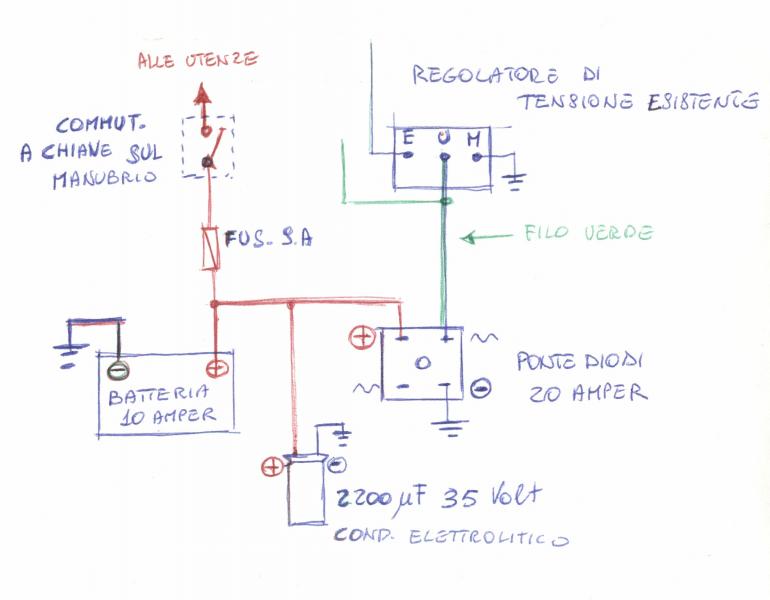 ALLE UTENZE
REGOLATORE DI
TENSIONE ESISTENTE
COMMUT.
A CHIAVE SUL
MANUBRIO
E U M
FUS. 8.A
FILO VERDE
+
-
BATTERIA
10 AMPER
+
~
~
-
PONTE DIODI
20 AMPER
+
-
2200 µF 35 Volt
COND. ELETTROLITICO